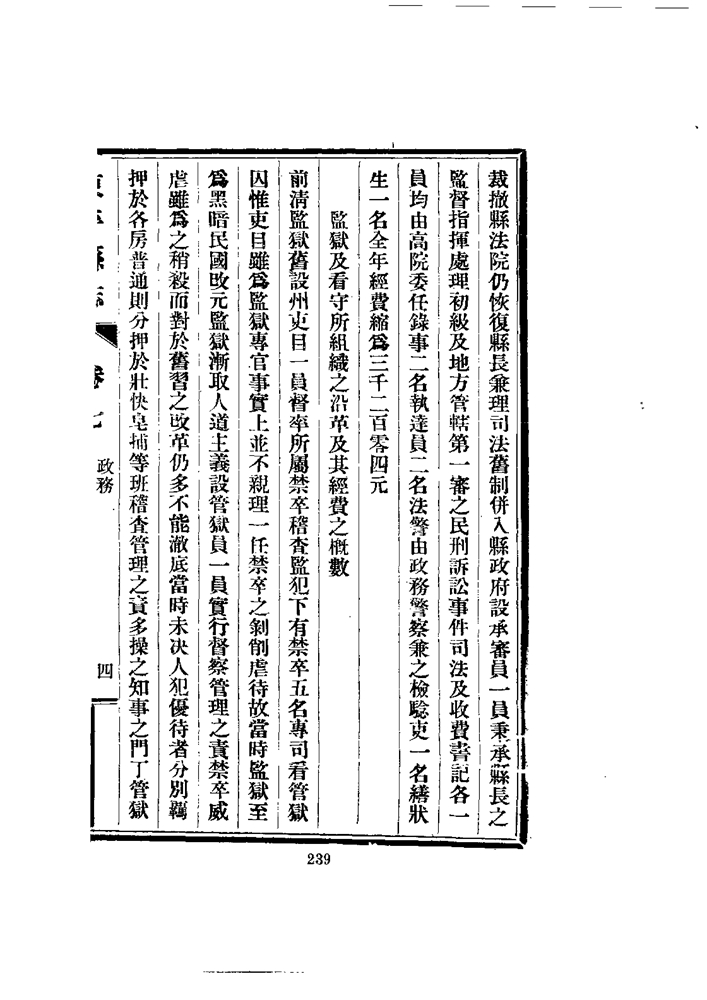 裁撤縣法院仍恢復縣長兼理司法舊制併入縣政府設承審員一員秉承縣長之
監督指揮處理初級及地方管轄第一審之民刑訴訟事件司法及收費書記各一
員均由高院委任錄事二名執達員二名法警由政務警察兼之檢驗吏一名繕狀
生一名全年經費縮爲三千二百零四元
監獄及看守所組織之沿革及其經費之槪數
前淸監獄舊設州吏目一員督率所屬禁卒稽查監犯下有禁卒五名專司看管獄
囚惟吏目雖爲監獄專官事實上並不親理一任禁卒之剝削虐待故當時監獄至
爲黑暗民國改元監獄漸取人道主義設管獄員一員實行督察管理之責禁卒威
虐雖爲之稍殺而對於舊習之改革仍多不能澈底當時未決人犯優待者分別羈
押於各房普通則分押於壯快皂捕等班稽查管理之責多操之知事之門丁管獄
縣志 卷七 政務 四
239